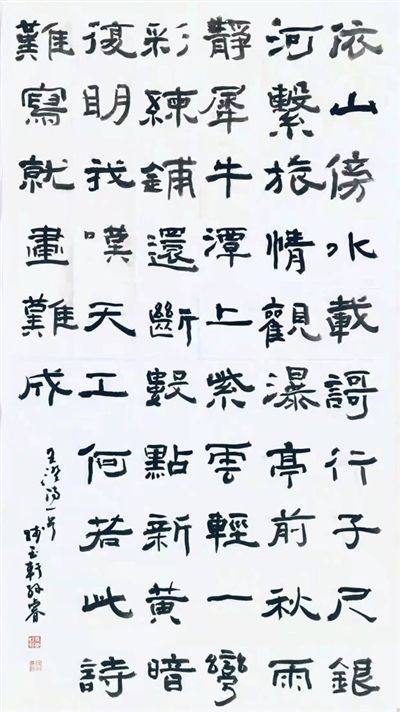 依山傍水載謌行子尺銀
河繫旅情觀瀑亭前秋雨
靜犀牛潭上紫雲輕一彎
彩練鋪還斷數點新黃暗
復明我嘆天工何若此詩
難寫就畫難成
王澄詩一首